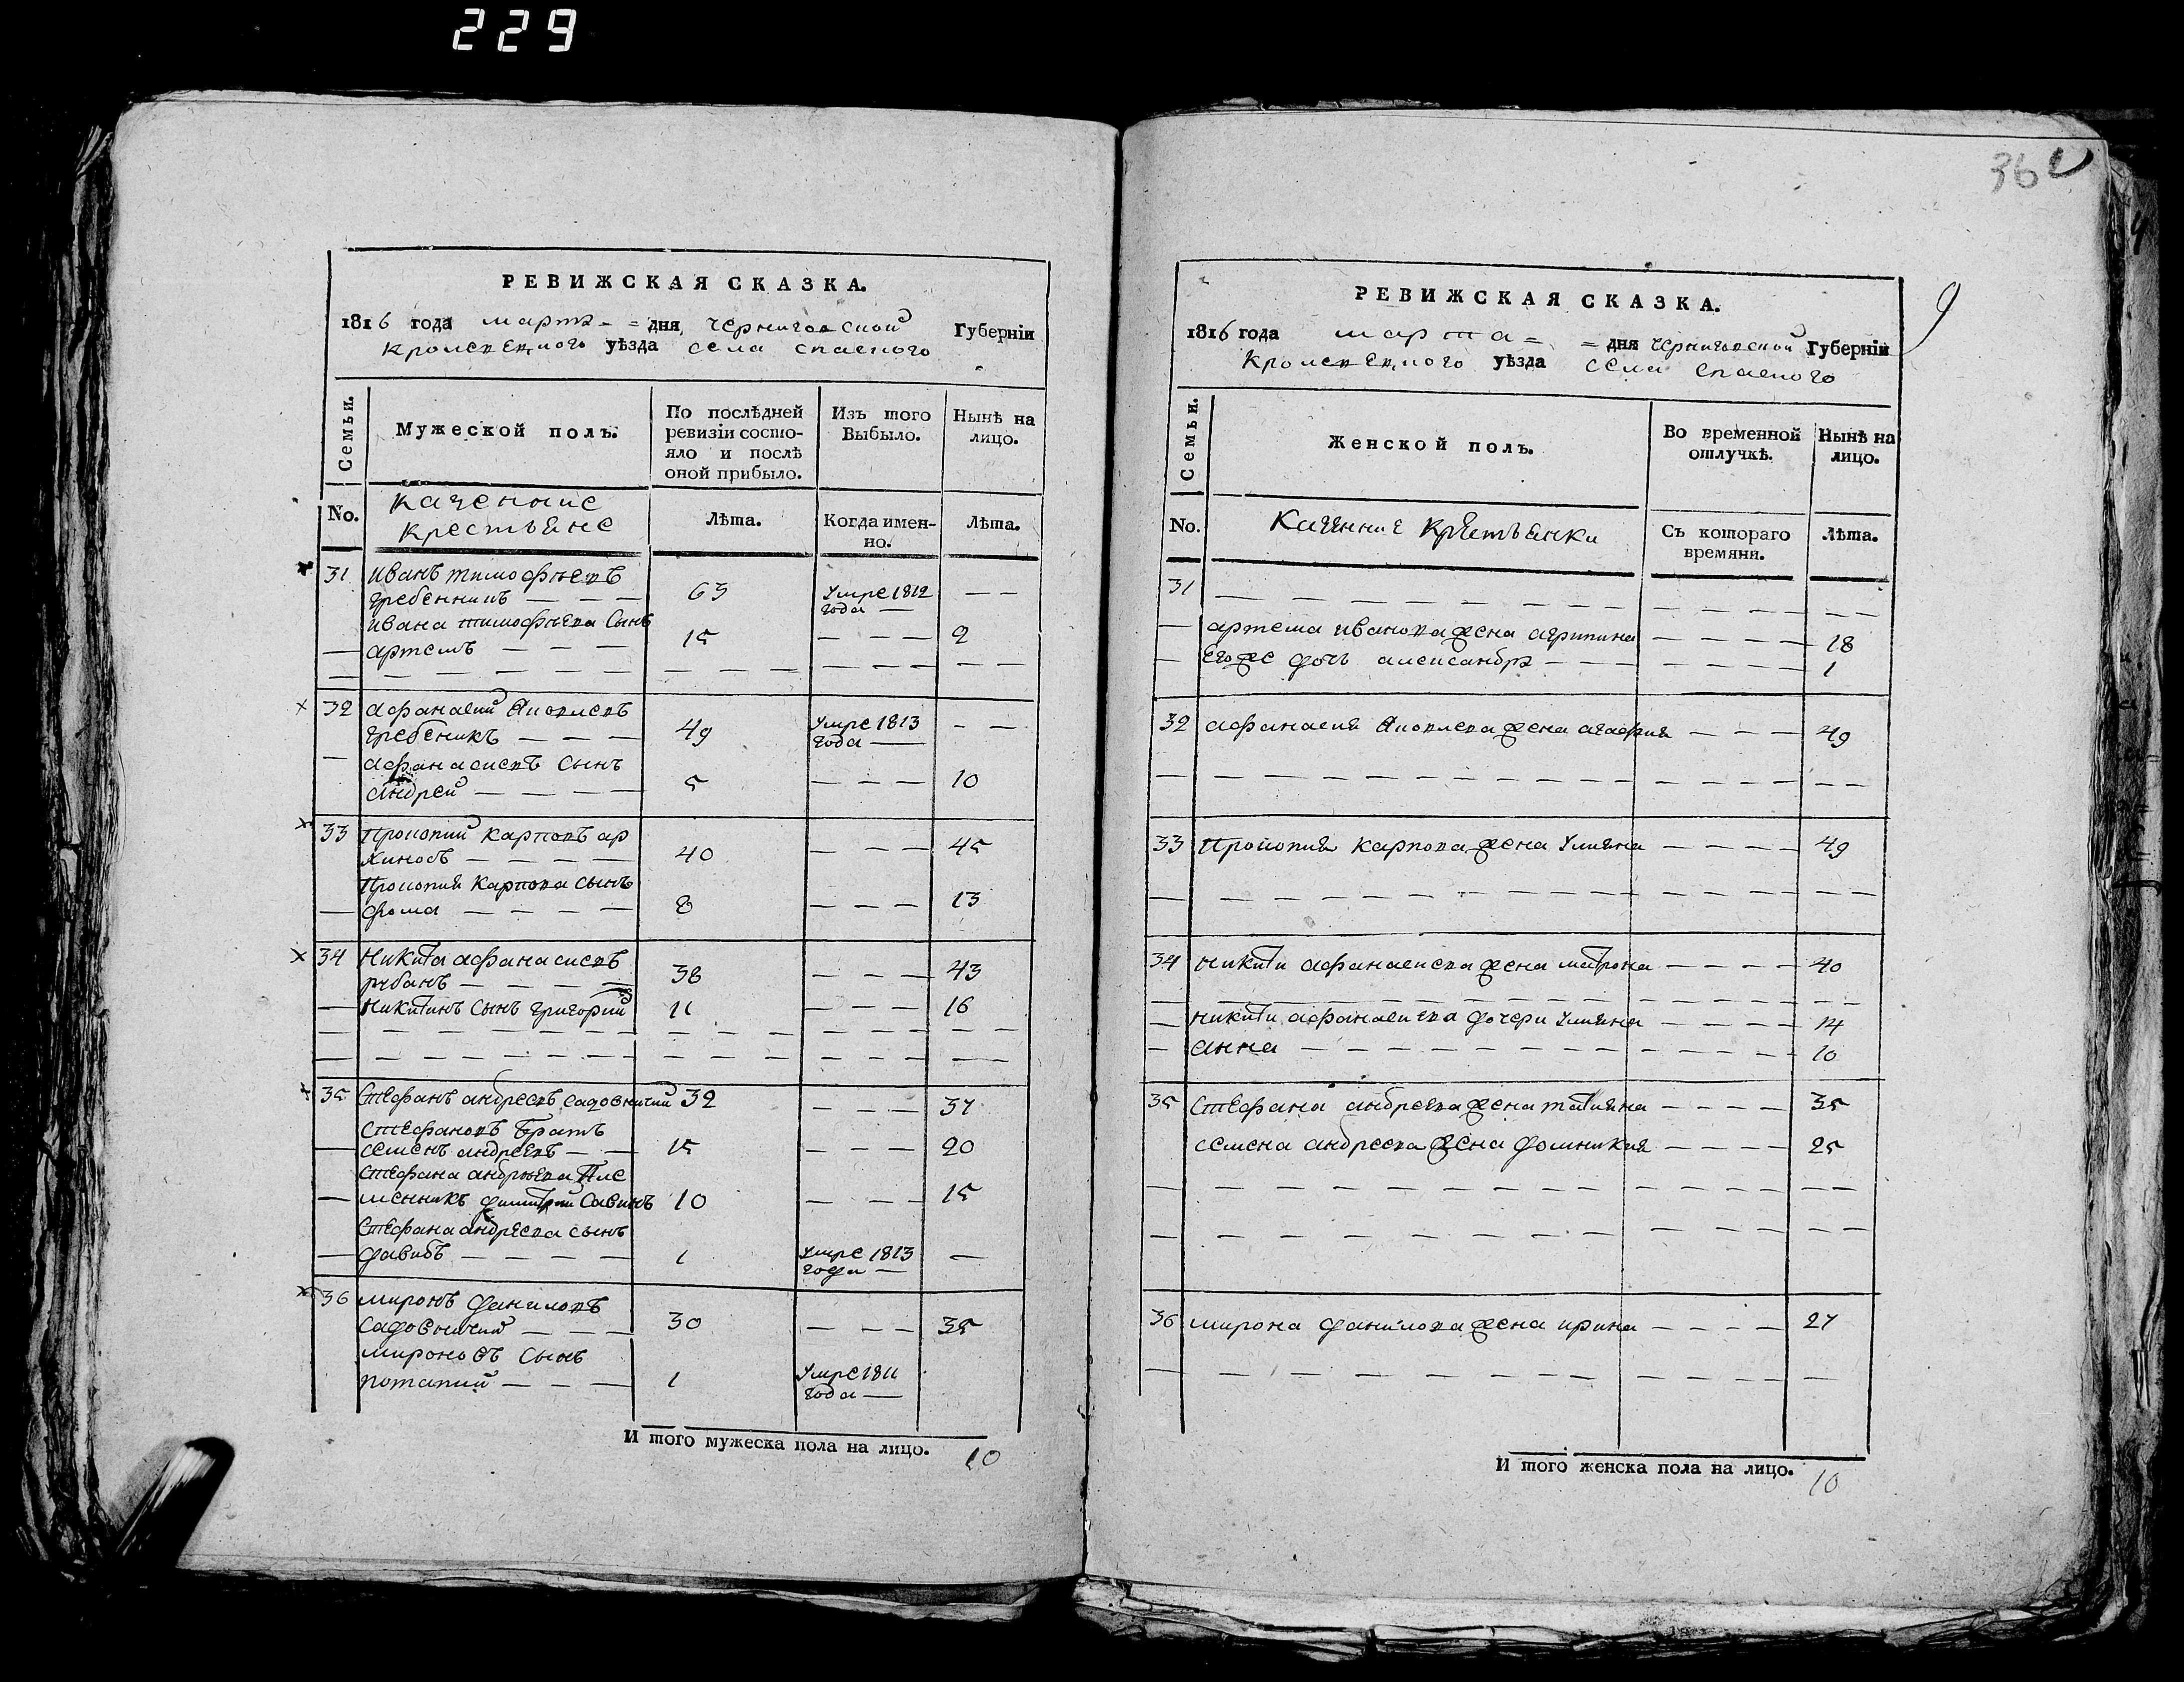 229
36
9
РЕВИЖСКАЯ СКАЗКА.
1816 года марта = дня, черниговской Губерніи
кролевецкого уѣзда села спаского
Семьи.
Мужеской полъ.
По послѣдней ревизіи состояло и послѣ оной прибыло.
Изъ того Выбыло.
Нынѣ на лицо.
No.
казенные
крестьяне
Лѣта.
Когда именно.
Лѣта.
31 иванъ тимофѣевъ
гребенникъ — — — 63 умре 1812 года — — —
ивана тимофѣева сынъ
— артемъ — — — 15 — — — 9
32 афанасий яковлевъ
гребеникъ — — — 49 умре 1813 года — — —
— афанасиевъ сынъ
андрей — — — — 5 — — — 10
33 Прокопий карповъ ар
хиповъ — — — — 40 — — — 45
Прокопия карпова сынъ
— фома — — — — 8 — — — 13
34 Никита афанасиевъ
рубанъ — — — — 38 — — — 43
— Никитинъ сынъ григорий 11 — — — 16
35 Стефанъ андреевъ садовничий 32 — — — 37
Стефановъ братъ
— семенъ андреевъ — — 15 — — — 20
Стефана андрѣева пле
— менникъ димитрий савинъ 10 — — — 15
Стефана андреева сынъ
— давидъ — — — — 1 умре 1813 года — —
36 миронъ даниловъ
садовничий — — — 30 — — — 35
мироновъ сынъ
потапий — — — 1 умре 1811 года —
И того мужеска пола на лицо. 10
РЕВИЖСКАЯ СКАЗКА.
1816 года марта = = дня черниговской Губерніи
кролевецкого уѣзда села спаского
Семьи.
Женской полъ.
Во временной отлучкѣ.
Нынѣ на лицо.
No.
казенние крестьянки
Съ котораго времяни.
Лѣта.
31
— артема иванова жена агрипина — — — — 18
— Его же дочь александра — — — — — — 1
32 афанасия яковлева жена агафия — — — 49
33 Прокопия карпова жена улияна — — — — 49
34 никити афанасиева жена матрона — — — — 40
— никити афанасиева дочери улияна — — — — 14
— анна — — — — — — — — — — 10
35 Стефана андреева жена татияна — — — — 35
семена андреева жена домникия — — — — 25
36 мирона данилова жена ирина — — — — 27
И того женска пола на лицо. 10